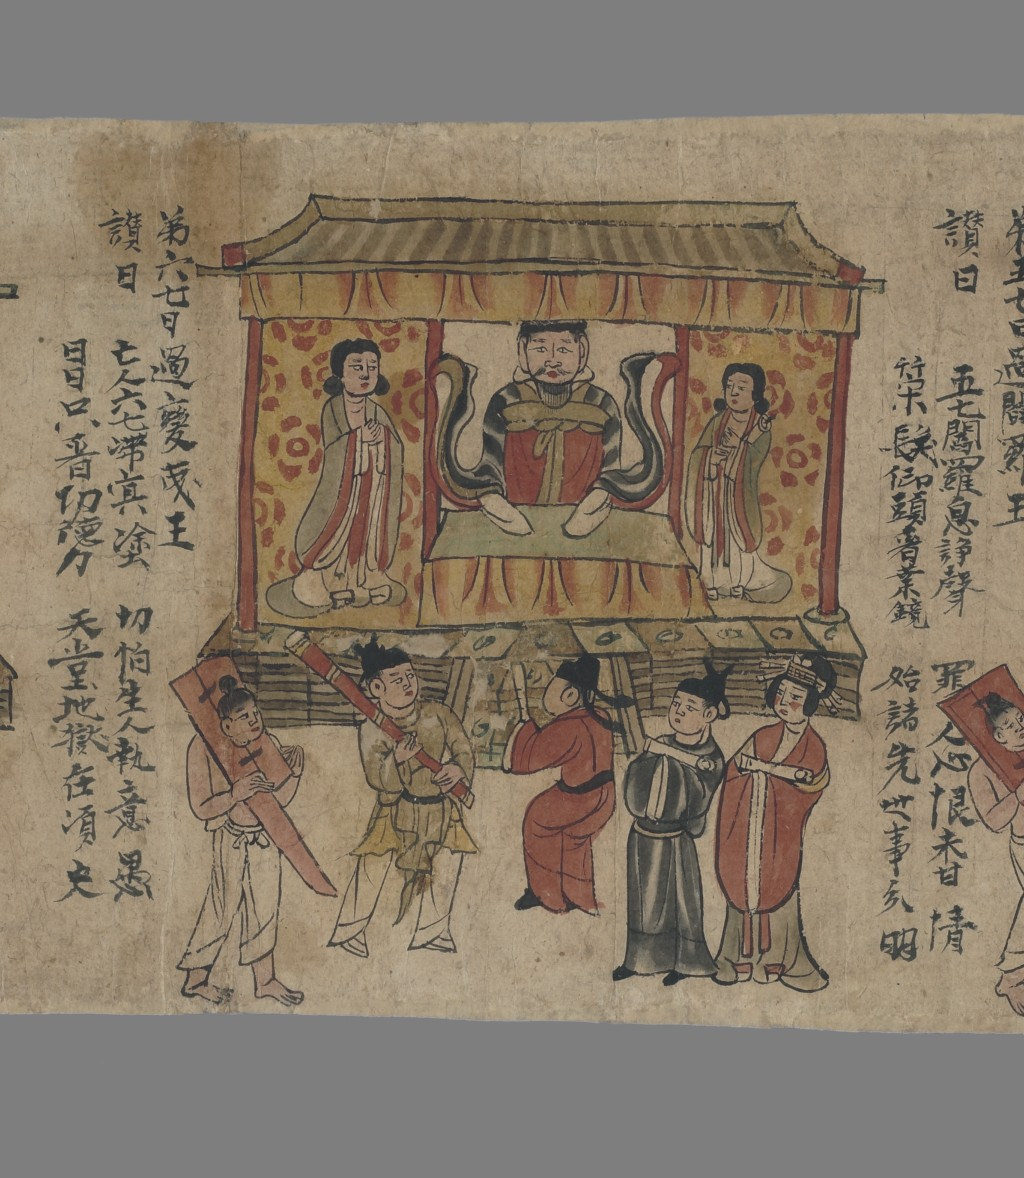 第五七日過閻羅王
讚曰 五七閻羅息諍聲 罪人心恨未甘情
策髮仰頭看業鏡 始諸先世事分明
第六七日過變成王
讚曰 亡人六七滯冥塗 切怕生人執意愚
日日只看功德力 天堂地獄在湏臾